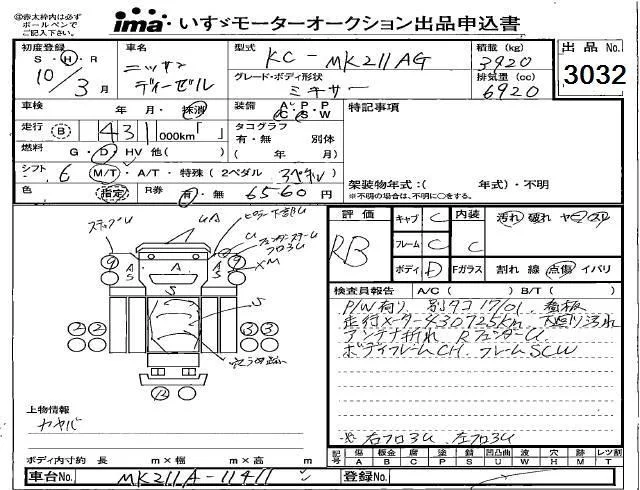 ⑩赤太枠内は必ず
ボールペンで
ご記入下さい。
ima いすゞモーターオークション出品申込書
初度登録
S・H・R
10/3月
車名
ニッサン
ディーゼル
型式
KC-MK211AG
グレード・ボディ形状
ミキサー
積載(kg)
3920
排気量(cc)
6920
出品No.
3032
車検 年・月・抹消
装備 A/C P/S P/W
特記事項
走行 B 431000km「 」
タコグラフ
有・無 別体
( 年/ 月)
燃料 G・D・HV 他( )
シフト 6 M/T・A/T・特殊(2ペダル 3ペダル
架装物年式:( 年式)・不明
※不明の場合は、不明に○をする。
色 指定
R券 有・無 6560円
評価 RB
キャブ C
内装 C
汚れ 破れ ヤ
フレーム C
ボディ D
Fガラス 割れ 線 点傷 イバリ
検査員報告 A/C( ) B/T( )
P/W有り 別タコ17/01 看板
走行メーター430,725km 下廻り汚れ
アンテナ折れ RフェンダーU
ボディフレームCH、フレームSCW
右フロ3U 左フロ3U
ステップU
UA
ピラー下部U
フロ3U
XM
9
9
A
S
A
A
S
S
S
U
2 2
3 3
12
上物情報
カヤバ
ボディ内寸約 長 m×幅 m×高 m
記号
傷 A
板金 B
腐 C
塗 P
錆 S
凹凸曲 U
波 W
穴 H
跡 M
レツ割 T
車台No. MK211A-11411
登録No.